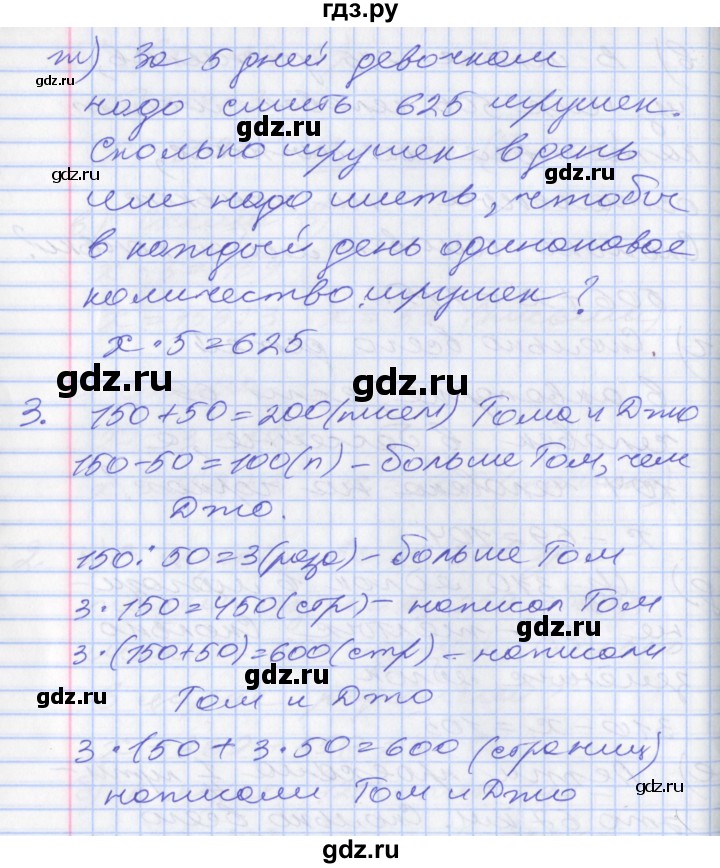 гдз.ру
т) За 5 дней девочкам
надо сшить 625 игрушек.
gdz.ru
Сколько игрушек в день
gdz.ru
gdz.ru
им надо шить, чтобы
в каждый день одинаковое
количество игрушек?
x·5=625
gdz.ru
gdz.ru
3. 150+50=200(писем) Тома и Джо
150-50=100(п) – больше Том, чем
Джо.
150:50=3(раза) – больше Том
3·150=450(стр) – написал Том
gdz.ru
3·(150+50)=600(стр) – написали
Том и Джо
3·150+3·50=600 (страниц)
gdz.ru
написали Том и Джо
gdz.ru
gdz.ru